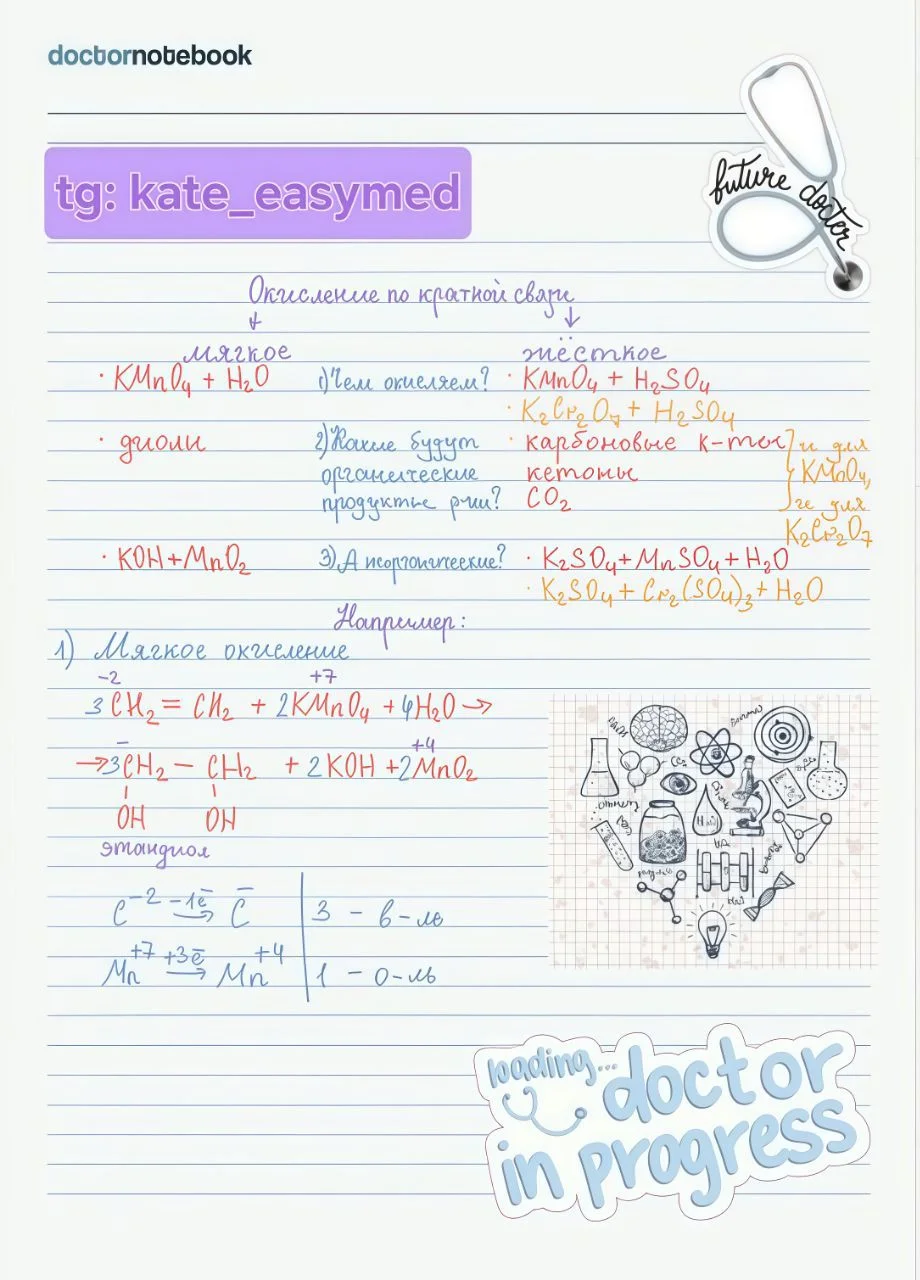 doctornotebook
tg: kate_easymed
future doctor
Окисление по кратной связи
мягкое
жёсткое
· KMnO₄ + H₂O
1) Чем окисляем?
· KMnO₄ + H₂SO₄
· K₂Cr₂O₇ + H₂SO₄
· диолы
2) Какие будут
органические
продукты р-ии?
· карбоновые к-ты
кетоны
CO₂
и для
KMnO₄,
и для
K₂Cr₂O₇
· KOH+MnO₂
3) А неорганические?
· K₂SO₄+MnSO₄+H₂O
· K₂SO₄ + Cr₂(SO₄)₃+ H₂O
Например:
1) Мягкое окисление
-2 +7
3CH₂ = CH₂ + 2KMnO₄ + 4H₂O →
- +4
→3CH₂ – CH₂ + 2KOH +2MnO₂
OH OH
этандиол
C⁻² -1e̅ → C⁻ | 3 – в-ль
Mn⁺⁷ +3e̅ → Mn⁺⁴ | 1 – о-ль
loading... doctor
in progress